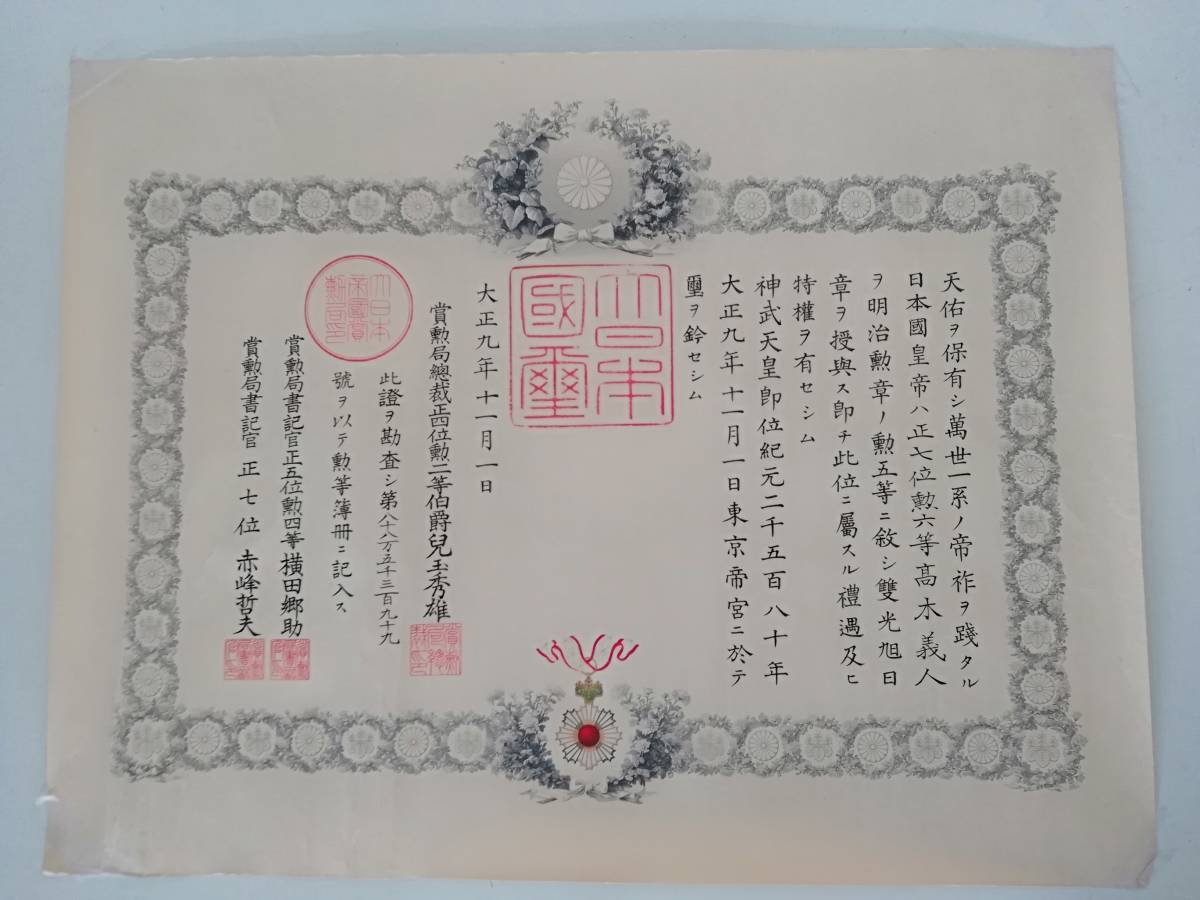 天佑ヲ保有シ萬世一系ノ帝祚ヲ踐タル
日本國皇帝ハ正七位勲六等髙木義人
ヲ明治勲章ノ勲五等ニ敘シ雙光旭日
章ヲ授與ス即チ此位ニ屬スル禮遇及ヒ
特權ヲ有セシム
神武天皇即位紀元二千五百八十年
大正九年十一月一日東京帝宮ニ於テ
璽ヲ鈐セシム
大日本
國璽
大正九年十一月一日
賞勲局總裁正四位勲二等伯爵兒玉秀雄
此證ヲ勘査シ第八十八万五千三百九十九
號ヲ以テ勲等簿冊ニ記入ス
大日本
帝國賞
勲局印
賞勲局書記官正五位勲四等横田郷助
賞勲局書記官正七位赤峰哲夫